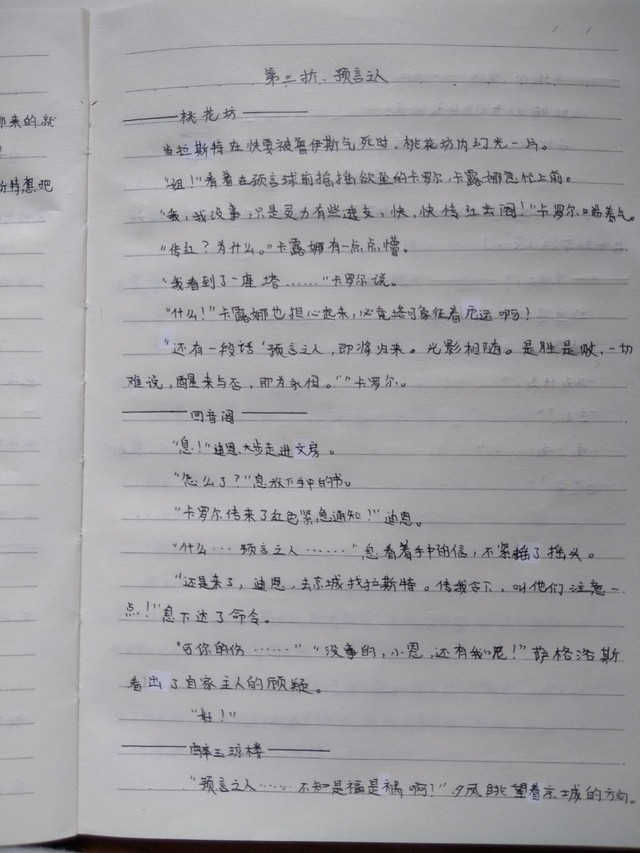 那来的就
斩特想把
第三折、预言之人
——桃花坊——
当拉斯特在快要被鲁伊斯气死时，桃花坊内幻光一片。
"祖！"看着在预言球前摇摇欲坠的卡罗尔，卡露娜急忙上前。
"我，我没事，只是灵力有些透支，快，快传红去阁！"卡罗尔喘着气。
"传红？为什么。"卡露娜有一点点懵。
"我看到了一座塔……"卡罗尔说。
"什么！"卡露娜也担心起来，必竟塔可象征着厄运啊！
"还有一段话'预言之人，即将归来。光影相随。是胜是败，一切
难说，醒来与否，即为永恒。'"卡罗尔。
——回音阁——
"息！"迪恩大步走进文房。
"怎么了？"息放下手中的书。
"卡罗尔传来了红色紧急通知！"迪恩。
"什么…预言之人……"息看着手中的信，不紧摇了摇头。
"还是来了，迪恩，去京城找拉斯特。传我令下，叫他们注意一
点！"息下达了命令。
"可你的伤……""没事的，小恩，还有我呢！"萨格洛斯
看出了自家主人的顾疑。
"好！"
——醉玉琼楼——
"预言之人……不知是福是祸啊！"夕风眺望着京城的方向。